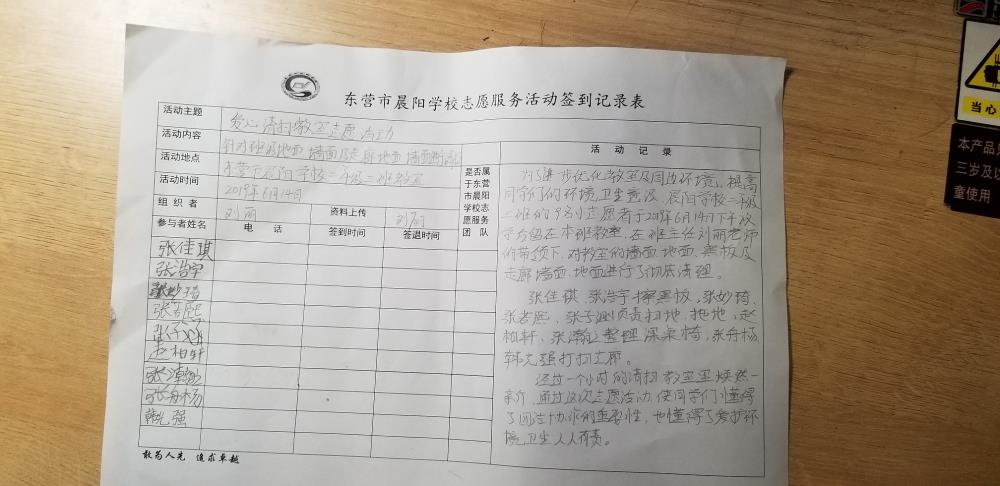 东营市晨阳学校志愿服务活动签到记录表
活动主题 爱心清扫教室志愿活动
活动内容 针对班级地面 墙面及走廊地面 墙面
活动地点 东营市晨阳学校二年级二班教室
活动时间 2019年6月14日
组织者 刘丽 资料上传 刘丽
参与者姓名 电话 签到时间 签退时间
是否属
于东营
市晨阳
学校志
愿服务
团队
张佳琪
张浩宇
张妙琦
张若熙
张子涵
赵柏轩
张瀚
张舟杨
韩允强
活动记录
为了进步优化教室及周边环境,提高
同学们的环境卫生意识,晨阳学校二年级
二班的9名小志愿者于2019年6月14日下午放
学后留在本班教室,在班主任刘丽老师
的带领下,对教室的墙面、地面、黑板及
走廊墙面、地面进行了彻底清理。
张佳琪、张浩宇擦黑板,张妙琦、
张若熙、张子涵负责扫地、拖地,赵
柏轩、张瀚整理课桌椅,张舟杨、
韩允强打扫走廊。
经过一个小时的清扫教室里焕然一
新,通过这次志愿活动,使同学们懂得
了团结协作的重要性,也懂得了爱护环
境卫生人人有责。
敢为人先 追求卓越
当心
本产品
三岁及以
童使用